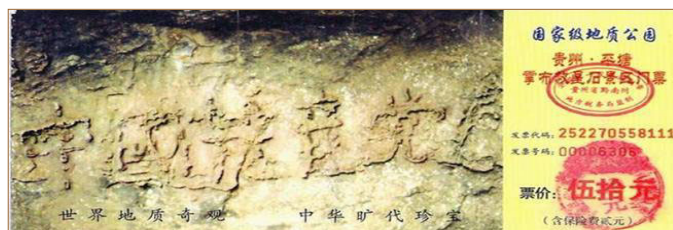 中國共産党亡
世界地质奇观 中华旷代珍宝
国家级地质公园
贵州·平塘
掌布救星石景区门票
贵州省黔南州
发票代码：252270558111
发票号码：00006306
票价：伍拾元
（含保险费贰元）